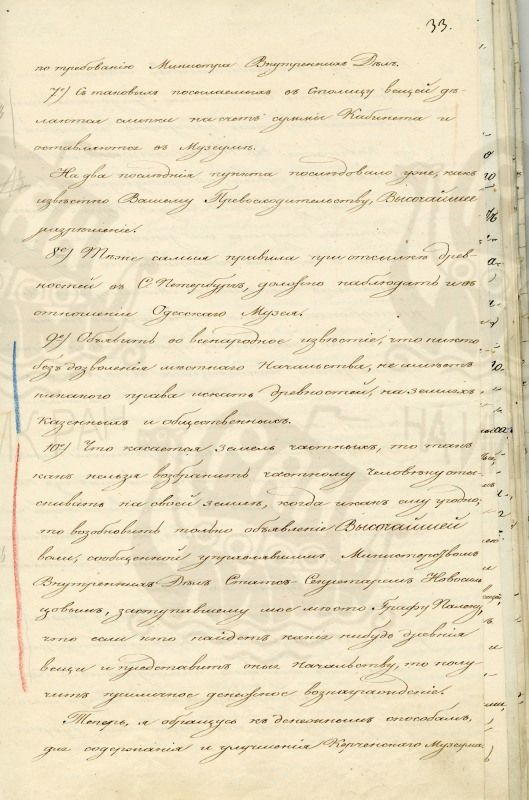 33.
по требованію Министра Внутреннихъ Дѣлъ.
7е) Съ таковыхъ посылаемыхъ въ Столицу вещей дѣ-
лаются слепки на счетъ суммы Кабинета и
оставляются въ Музеумѣ.
На два послѣдніе пункта послѣдовало уже, какъ
извѣстно Вашему Превосходительству, Высочайшее
разрѣшеніе.
8е) Тѣже самыя правила при отсылкѣ древ-
ностей въ С. Петербургъ, должно наблюдать и въ
отношеніи Одесскаго Музея.
9е) Объявить во всенародное извѣстіе, что никто
безъ дозволенія мѣстнаго Начальства, не имѣетъ
никакого права искать древностей, на земляхъ
Казенныхъ и общественныхъ.
10е) Что касается земель частныхъ, то такъ
какъ нельзя возбранить частному человѣку оты-
скивать на своей землѣ, когда и какъ ему угодно,
то возобновить только объявленіе Высочайшей
воли, сообщенной управлявшимъ Министерствомъ
Внутреннихъ Дѣлъ Статсъ-Секретаремъ Новосиль
цовымъ, заступавшему мое мѣсто Графу Палену,
что если кто найдетъ какія нибудь древнія
вещи и представитъ оныя Начальству, то полу-
читъ приличное денежное вознагражденіе.
Теперь, я обращусь къ денежнымъ способамъ,
для содержанія и улучшенія Керченскаго Музеума